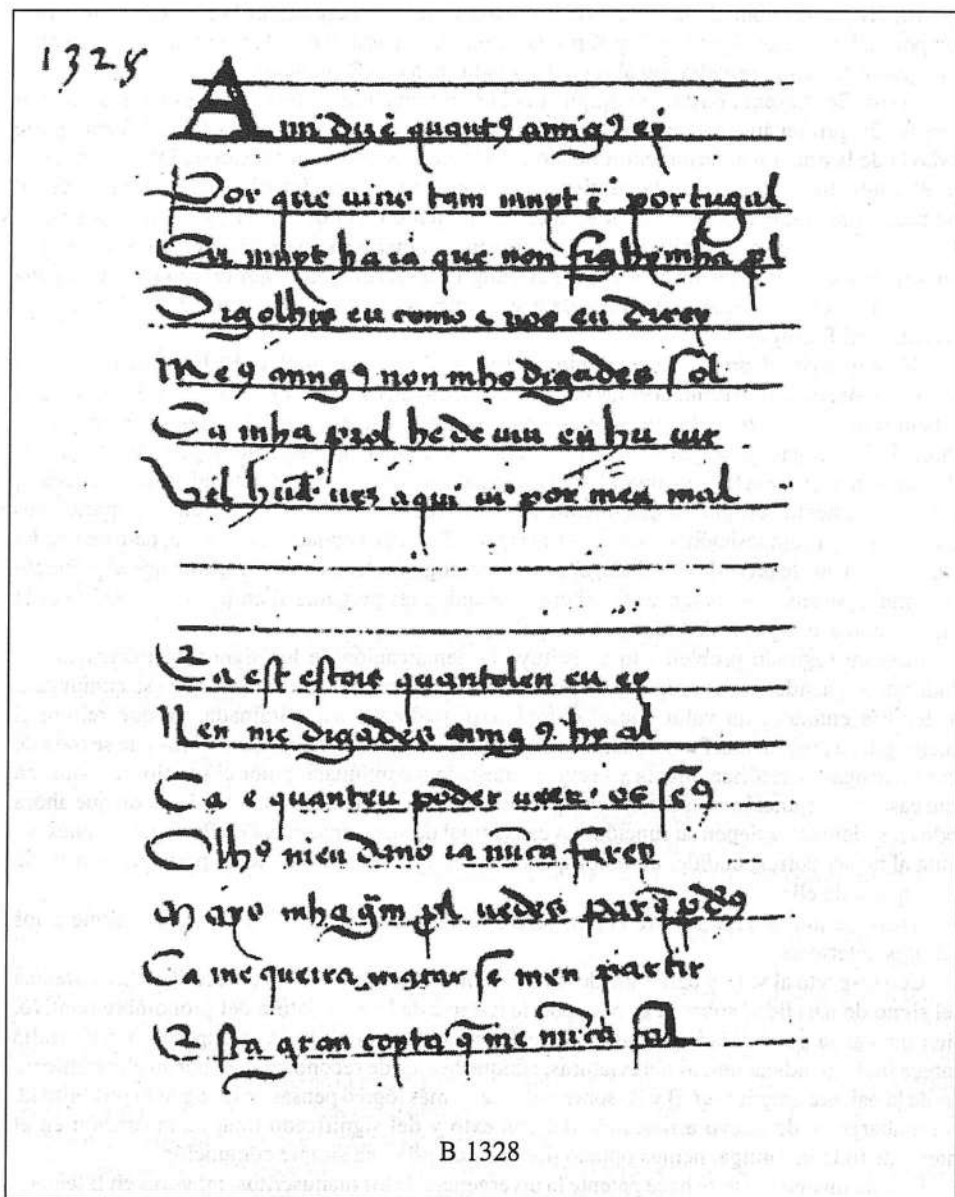 1328
A mi dizẽ quantꝯ amigꝯ ey
Por que uiuo tam muyt ẽ portugal
Ca muyt ha ia que non fiz hy mha pl
Digolhis eu como e uos eu direy
Meꝯ amigꝯ non mho digades sol
Ca mha prol he de uiu eu hu
Vel hũa uez aqui ui por meu mal
Ca est estoie quantolen eu ey
Nen me digades amigꝯ hy al
Ca e quanteu poder ueer
Olhoꝯ meu dano ia nũca farey
Mays mha grã pl uedes par
Ca me queira matar se men partir
Esta gran coyta q̃ me
B 1328